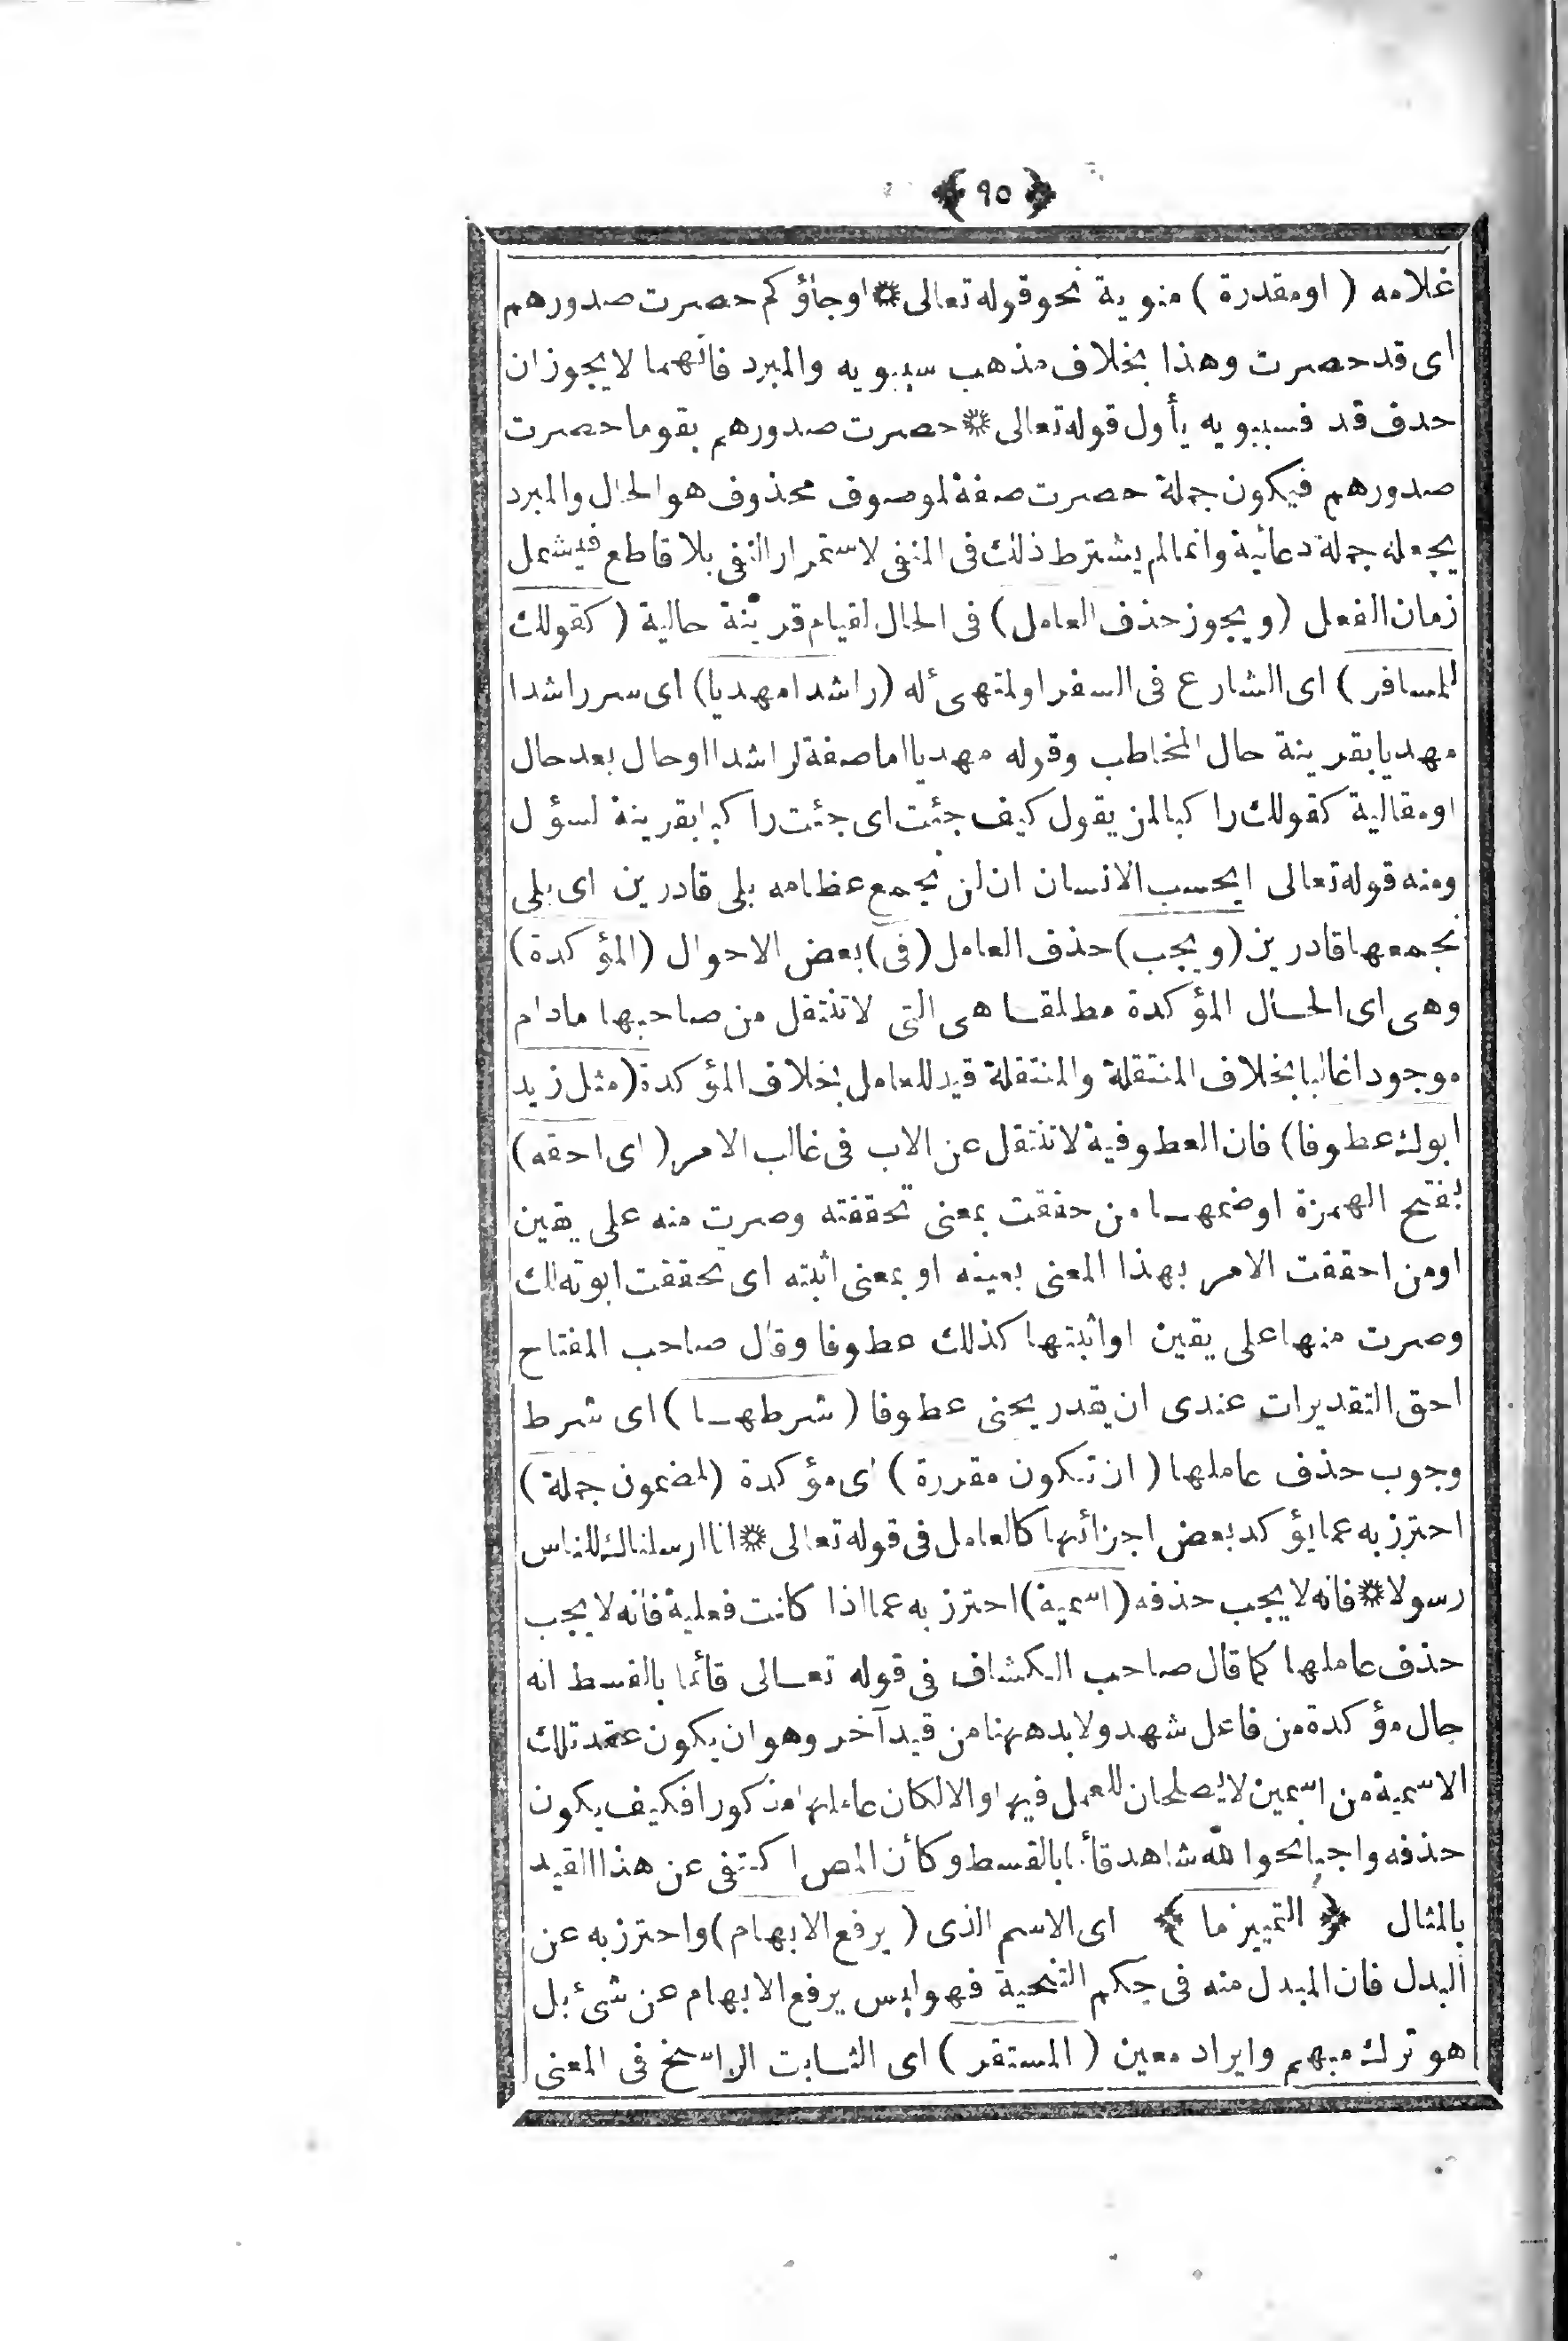 ﴿ ٩٥ ﴾
غلامه ( اومقدرة ) منوية نحو قوله تعالى ۞ اوجاؤكم حصرت صدورهم
اى قد حصرت وهذا بخلاف مذهب سيبويه والمبرد فانهما لايجوزان
حذف قد فسيبويه يأول قوله تعالى ۞ حصرت صدورهم بقوما حصرت
صدورهم فيكون جملة حصرت صفة لموصوف محذوف هو الحال والمبرد
يجعله جملة دعائية وانمالم يشترط ذلك فى المنفى لاستمرار النفى بلا قاطع فيشمل
زمان الفعل ( ويجوز حذف العامل ) فى الحال لقيام قرينة حالية ( كقولك
للمسافر ) اى الشارع فى السفر اولمتهىء له ( راشدا مهديا ) اى سر راشدا
مهديا بقرينة حال المخاطب وقوله مهديا اما صفة لراشدا اوحال بعد حال
اومقالية كقولك راكبا لمن يقول كيف جئت اى جئت راكبا بقرينة لسؤل
ومنه قوله تعالى ايحسب الانسان ان لن نجمع عظامه بلى قادرين اى بلى
نجمعها قادرين ( ويجب ) حذف العامل ( فى ) بعض الاحوال ( المؤكدة )
وهى اى الحال المؤكدة مطلقا هى التى لاتنتقل من صاحبها مادام
موجودا غالبا بخلاف المنتقلة والمنتقلة قيد للعامل بخلاف المؤكدة ( مثل زيد
ابوك عطوفا ) فان العطوفية لاتنتقل عن الاب فى غالب الامر ( اى احقه )
بفتح الهمزة اوضمها من حققت بمعنى تحققته وصرت منه على يقين
اومن احققت الامر بهذا المعنى بعينه او بمعنى اثبته اى تحققت ابوته لك
وصرت منها على يقين اواثبتها كذلك عطوفا وقال صاحب المفتاح
احق التقديرات عندى ان يقدر يحنى عطوفا ( شرطها ) اى شرط
وجوب حذف عاملها ( ان تكون مقررة ) اى مؤكدة ( لمضمون جملة )
احترز به عما يؤكد بعض اجزائها كالعامل فى قوله تعالى ۞ انا ارسلناك للناس
رسولا ۞ فانه لا يجب حذفه ( اسمية ) احترز به عما اذا كانت فعلية فانه لا يجب
حذف عاملها كما قال صاحب الكشاف فى قوله تعالى قائما بالقسط انه
حال مؤكدة من فاعل شهد ولابد ههنا من قيد آخر وهو ان يكون عقد تلك
الاسمية من اسمين لايصلحان للعمل فيها والا لكان عاملها مذكورا فكيف يكون
حذفه واجبا نحو الله شاهد قائما بالقسط وكأن المص اكتفى عن هذا القيد
بالمثال ﴿ التمييز ما ﴾ اى الاسم الذى ( يرفع الابهام ) واحترز به عن
البدل فان المبدل منه فى حكم التنحية فهو ليس يرفع الابهام عن شىء بل
هو ترك مبهم وايراد معين ( المستقر ) اى الثابت الراسخ فى المعنى